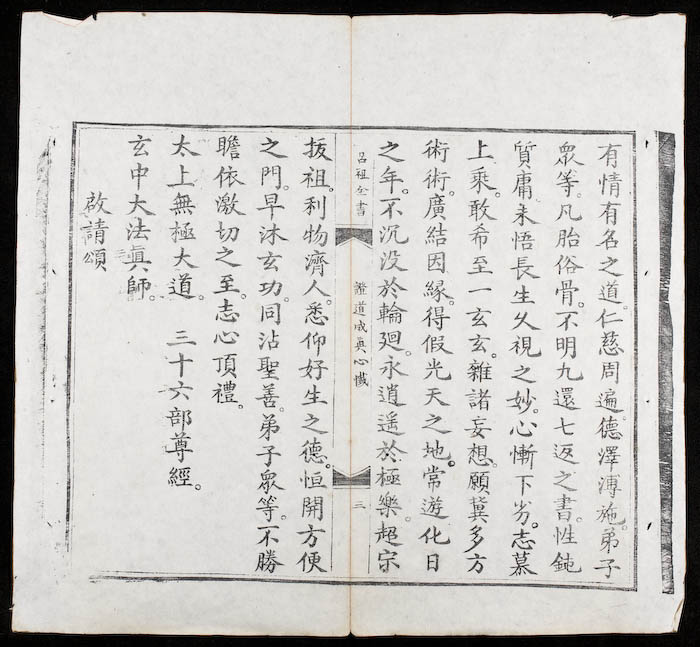 有情有名之道。仁慈周遍。德澤溥施。弟子
眾等。凡胎俗骨。不明九還七返之書。性鈍
質庸。未悟長生久視之妙。心慚下劣。志慕
上乘。敢希至一玄玄。雜諸妄想。願冀多方
術術。廣結因緣。得假光天之地。常遊化日
之年。不沉没於輪廻。永逍遥於極樂。超宗
呂祖全書
證道成真心懺
三
拔祖。利物濟人。悉仰好生之德。恒開方便
之門。早沐玄功。同沾聖善。弟子眾等。不勝
瞻依激切之至。志心頂禮。
太上無極大道。 三十六部尊經。
玄中大法真師。
啟請頌